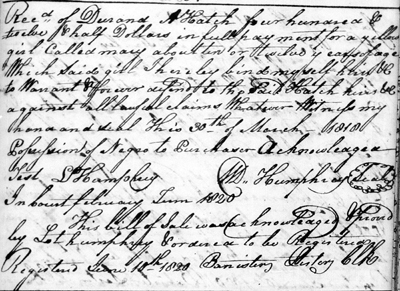 Recd. of Durand Hatch four hundred &
twelve & half Dollars in full payment for a yellow
girl Called mary about ten or twelve years of age
Which said girl I hereby bind myself heirs &c
to Warant & forever defend to the said Hatch heirs &c
against all lawful claims Whatever Witness my
hand and seal This 30th of March 1818
Possession of Negro to Purchaser Acknowledged
Test L Humphrey Wm. Humphrey Seal
In Court February Term 1820
This bill of Sale was acknowledged
by Lot Humphrey & ordered to be Registered
Registered June 10th 1820